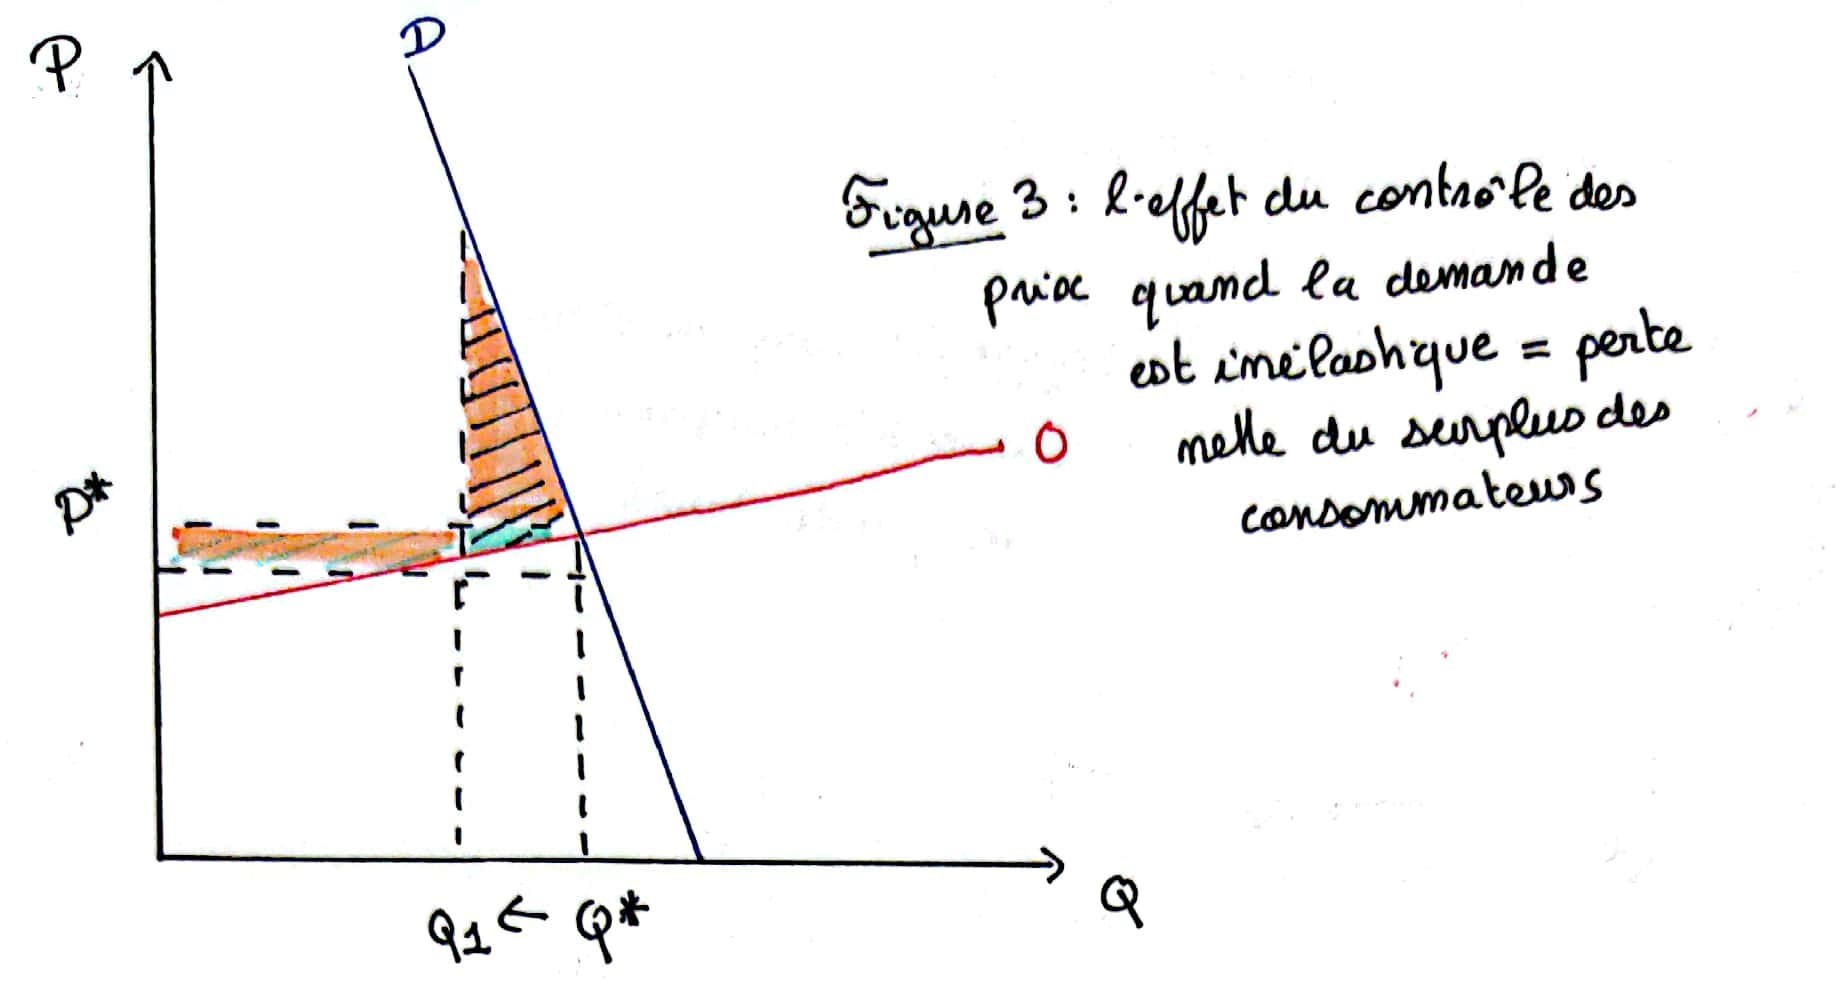 P
D
Figure 3 : l'effet du contrôle des
prix quand la demande
est inélastique = perte
nette du surplus des
consommateurs
O
P*
Q1 ← Q*
Q